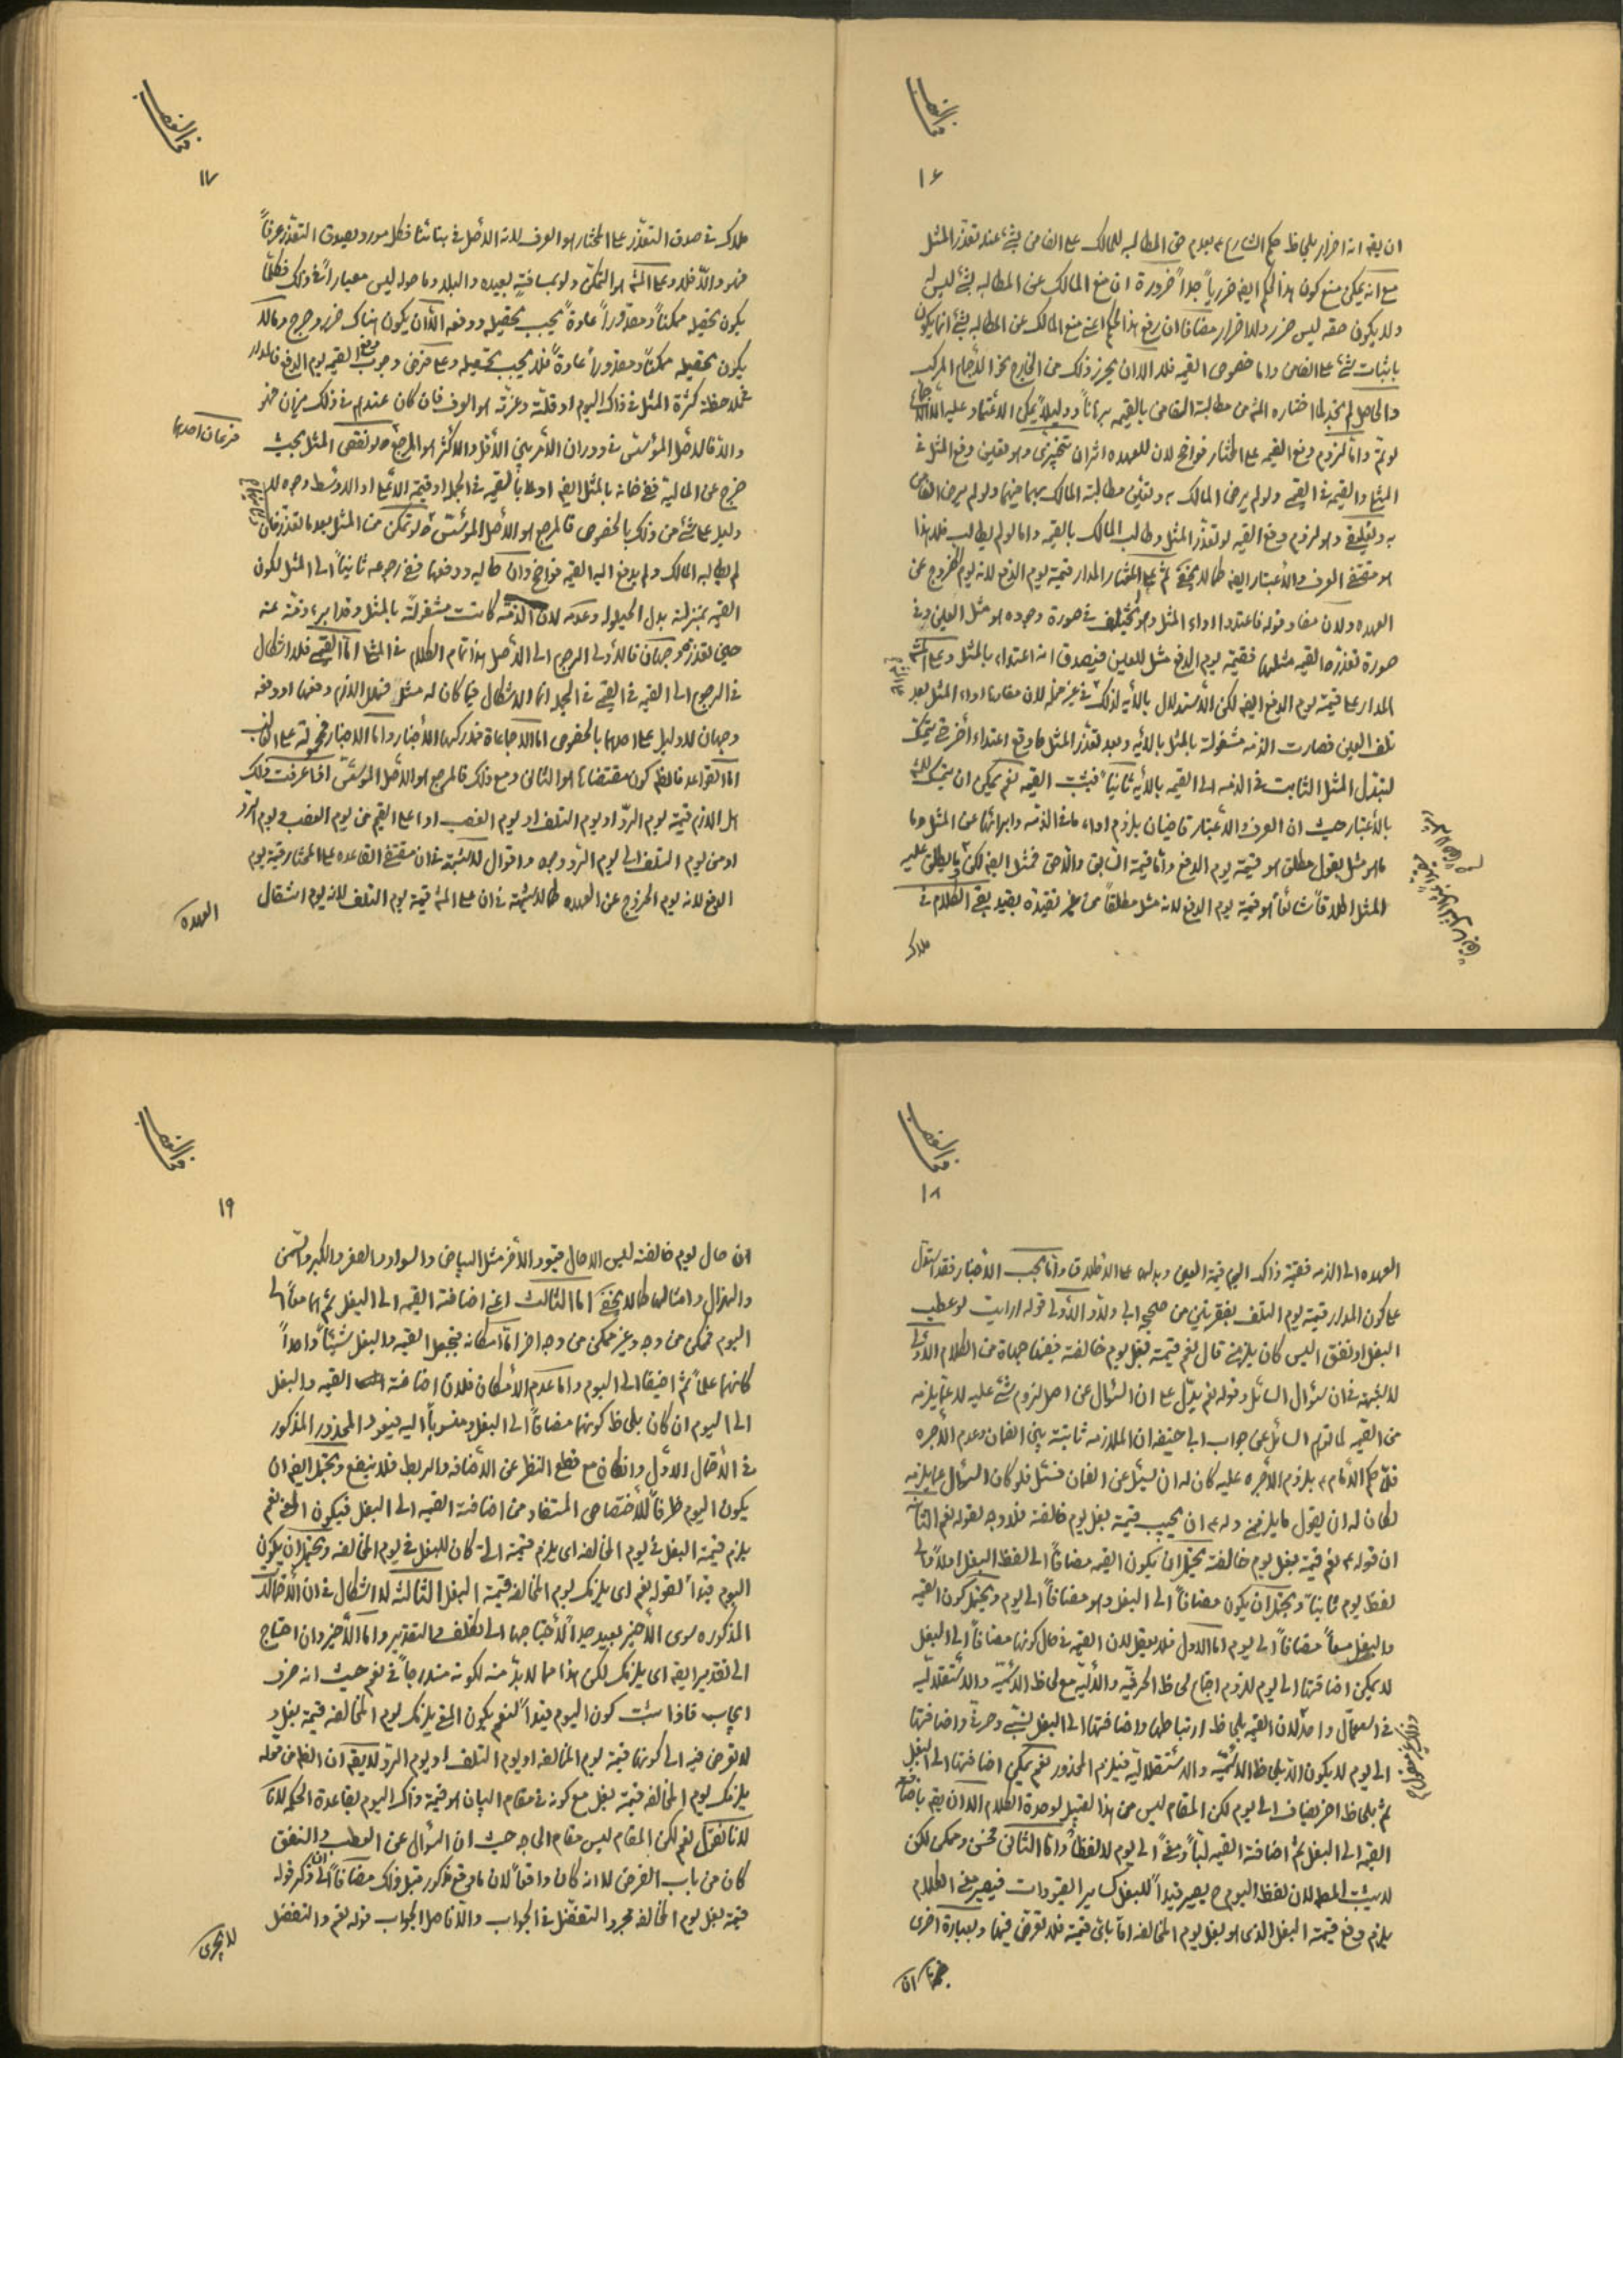 في الغصب
١٦
ان يقال انه اضرار بلحاظ حكم الشارع بعدم حق المطالبه للمالك على الضامن بشئ عند تعذر المثل
مع انه يمكن منع كون هذا الحكم ايضا ضرريا جدا ضرورة ان منع المالك عن المطالبه بشئ ليس له
ولا يكون حقه ليس ضرر ولا اضرار مضافا ان رفع هذا الحكم اعنى منع المالك عن المطالبه بشئ انما يكون
باثبات شئ على الضامن واما خصوص القيمه فلا الا ان يحرز ذلك من الخارج بنحو الاجماع المركب
والحاصل لم نجد لما اختاره المش من مطالبة الضامن بالقيمه برهانا ودليلا يمكن الاعتماد عليه
لو تم واما لزوم دفع القيمه على المختار فواضح لان للعهده اثران تنجيزى وهو تعين دفع المثل في
المثلي والقيمه في القيمي ولو لم يرض المالك به وتعين مطالبة المالك بهما منهما ولو لم يرض الضامن
به وتعليقي وهو لزوم دفع القيمه لو تعذر المثل وطالب المالك بالقيمه واما لو لم يطالب فلا هذا
هو مقتضى العرف والاعتبار ايضا كما لا يخفى ثم على المختار المدار قيمة يوم الدفع لانه يوم الخروج عن
العهده ولان مفاد قوله فاعتدوا اداء المثل وهو يختلف في صورة وجوده هو مثل العين وفي
صورة تعذره القيمه مثلها فقيمة يوم الدفع مثل للعين فيصدق انه اعتداء بالمثل وعلى المش
المدار على قيمة يوم الدفع ايضا لكن الاستدلال بالايه لذلك في غير محله لان مفادها اداء المثل بعد
تلف العين فصارت الذمه مشغولة بالمثل بالايه وبعد تعذر المثل ما وقع اعتداء أخر حتى يتمسك
لتبدل المثل الثابت في الذمه الى القيمه بالاية ثانيا فيثبت القيمه نعم يمكن ان يتمسك للمش
بالاعتبار حيث ان العرف والاعتبار قاضيان بلزوم اداء ما في الذمه وابرائها عن المثل وما
ما هو مثل بقول مطلق هو قيمة يوم الدفع واما قيمة السابق واللاحق فمثل ايضا لكن ما يطلق عليه
المثل اطلاقا شائعا هو قيمة يوم الدفع لانه مثل مطلقا من غير تقييده بقيد بقي الكلام في
ملاك
في الغصب
١٧
ملاك في صدق التعذر على المختار هو العرف لانه الاصل في بنائنا فكل مورد يصدق التعذر عرفا
فهو والا فلا وعلى المش هو التمكن ولو بمسافة بعيده والبلد وما حوله ليس معيارا في ذلك فكلما
يكون تحصيله ممكنا ومقدورا عادة يجب تحصيله ودفعه الا ان يكون هناك ضرر وحرج ومالا
يكون تحصيله ممكنا ومقدورا عادة فلا يجب تحصيله وعلى فرض وجوب دفع القيمه يوم الدفع فالمدار
بملاحظة كثرة المثل في ذاك اليوم او قلته وعزته هو العرف فان كان عندهم في ذلك ميزان فهو
والا فالاصل المؤسس في دوران الأمر بين الأقل والأكثر هو المرجع ولو نقص المثل بحيث
خرج عن المالية ففي ضمانه بالمثل ايضا او على بالقيمه في الجمله او قيمة الاعلى او الاوسط وجوه لا
دليل على شئ من ذلك بالخصوص فالمرجع هو الأصل المؤسس ولو تمكن من المثل بعد ما تعذر فان
لم يطالبه المالك ولم يدفع اليه القيمه فواضح وان طالبه ودفعها ففي رجوعه ثانيا الى المثل لكون
القيمه بمنزلة بدل الحيلوله وعدمه لان الذمة كانت مشغولة بالمثل وقد ابرء ذمته عنه
حين تعذره وجهان فالاولى الرجوع الى الاصل هذا تمام الكلام في المثلي اما القيمي فلا اشكال
في الرجوع الى القيمه في القيمي في الجمله انما الاشكال فيما كان له مثل فهل الازم دفعها او دفعه
وجهان لا دليل على احدهما بالخصوص اما الاجماعات فمدركها الاخبار واما الاخبار فمحمولة على الغالب
اما القواعد فالظ كون مقتضاها هو الثانى ومع ذلك فالمرجع هو الاصل المؤسس اذا عرفت ذلك
هل الازم قيمة يوم الرد او يوم التلف او يوم الغصب او اعلى القيم من يوم الغصب الى يوم الرد
او من يوم التلف الى يوم الرد وجوه واقوال لا شبهة في ان مقتضى القاعده على المختار قيمة يوم
الدفع لانه يوم الخروج عن العهده كما لا شبهة في ان على المش قيمة يوم التلف لانه يوم انتقال
العهده
في الغصب
١٨
العهده الى الذمه فقيمة ذاك اليوم قيمة العين وبدلها على الاطلاق واما بحسب الاخبار فقد استدل
على كون المدار قيمة يوم التلف بفقرتين من صحيح ابى ولاد الاولى قوله ارايت لو عطب
البغل او نفق اليس كان يلزمنى قال نعم قيمة بغل يوم خالفته فيها جهات من الكلام الاولى
لا شبهة في ان سؤال السائل وقوله نعم يدل على ان السؤال عن اصل لزوم شئ عليه لا عما يلزمه
من القيمه لما توهم السائل عن جواب ابى حنيفه ان الملازمه ثابتة بين الضمان وعدم الأجره
فلما حكم الامام بلزوم الأجره عليه كان له ان يسئل عن الضمان فسئل فلو كان السؤال عما يلزمه
لكان له ان يقول ما يلزمنى وله ان يجيب قيمة بغل يوم خالفته فلا وجه لقوله نعم الثانيه
ان قوله نعم قيمة بغل يوم خالفته يحتمل ان يكون القيمه مضافا الى لفظ البغل اولا والى
لفظ يوم ثانيا ويحتمل ان يكون مضافا الى البغل وهو مضافا الى يوم ويحتمل كون القيمه
والبغل معا مضافا الى يوم اما الاول فلا يعقل لان القيمه في حال كونها مضافا الى البغل
لا يمكن اضافتها الى يوم للزوم اجتماع لحاظ الحرفية والالية مع لحاظ الاسمية والاستقلاليه
في استعمال واحد لان القيمه بلحاظ ارتباطها واضافتها الى البغل نسبة حرفية واضافتها
الى يوم لا يكون الا بلحاظ الاسمية والاستقلالية فيلزم المحذور نعم يمكن اضافتها الى البغل
ثم بلحاظ اخر يضاف الى يوم لكن المقام ليس من هذا القبيل لوحدة الكلام الا ان يقال باضافة
القيمة الى البغل ثم اضافة القيمه لبا ومعنى الى يوم لا لفظا واما الثانى فحسن وممكن لكن
لا يثبت المط لان لفظ اليوم ح يصير قيدا للبغل كساير القيودات فيصير معنى الكلام
يلزم دفع قيمة البغل الذى هو بغل يوم المخالفه اما باى قيمة فلا تعرض فيها وبعبارة اخرى
كما ان
في الغصب
١٩
ان حال يوم خالفته ليس الا حال قيود الأخر مثل البياض والسواد والصغر والكبر والسمن
والهزال وامثالها كما لا يخفى اما الثالث اعنى اضافة القيمه الى البغل ثم هما معا الى
اليوم فممكن من وجه وغير ممكن من وجه اخر اما امكانه فبجعل القيمه والبغل شيئا واحدا
كانها علما ثم اضيفا الى اليوم واما عدم الامكان فلان اضافة القيمه والبغل
الى اليوم ان كان بلحاظ كونها مضافا الى البغل ومنسوبا اليه فيعود المحذور المذكور
في الاحتمال الاول وان كان مع قطع النظر عن الاضافه والربط فلا ينفع ويحتمل ايضا ان
يكون اليوم ظرفا للاختصاص المستفاد من اضافة القيمه الى البغل فيكون المعنى نعم
يلزم قيمة البغل في يوم المخالفه اى يلزم قيمة التى كان للبغل في يوم المخالفه ويحتمل ان يكون
اليوم قيدا لقوله نعم اى يلزمك يوم المخالفه قيمة البغل الثالثه لا اشكال في ان الاحتمالات
المذكوره سوى الاخير بعيد جدا لاحتياجها الى تكلف والتقدير واما الاخير وان احتاج
الى تقدير ايضا اى يلزمك لكن هذا مما لا بد منه لكونه مندرجا في نعم حيث انه حرف
ايجاب فاذا ثبت كون اليوم قيدا لنعم يكون المعنى يلزمك يوم المخالفه قيمة بغل و
لا تعرض فيه الى كونها قيمة يوم المخالفه او يوم التلف او يوم الرد لا يقال ان الظ من قوله
يلزمك يوم المخالفه قيمة بغل مع كونه في مقام البيان هو قيمة ذاك اليوم بقاعدة الحكمه
لانا نقول نعم لكن المقام ليس مقام الحاجه حيث ان السؤال عن العطب والنفق
كان من باب الفرض لا انه كان واقعا لان ما وقع مذكور قبل ذلك مضافا الى ان ذكر قوله
قيمة بغل يوم المخالفه مجرد التفضل في الجواب والا فاصل الجواب قوله نعم والتفضل
لا يجرى